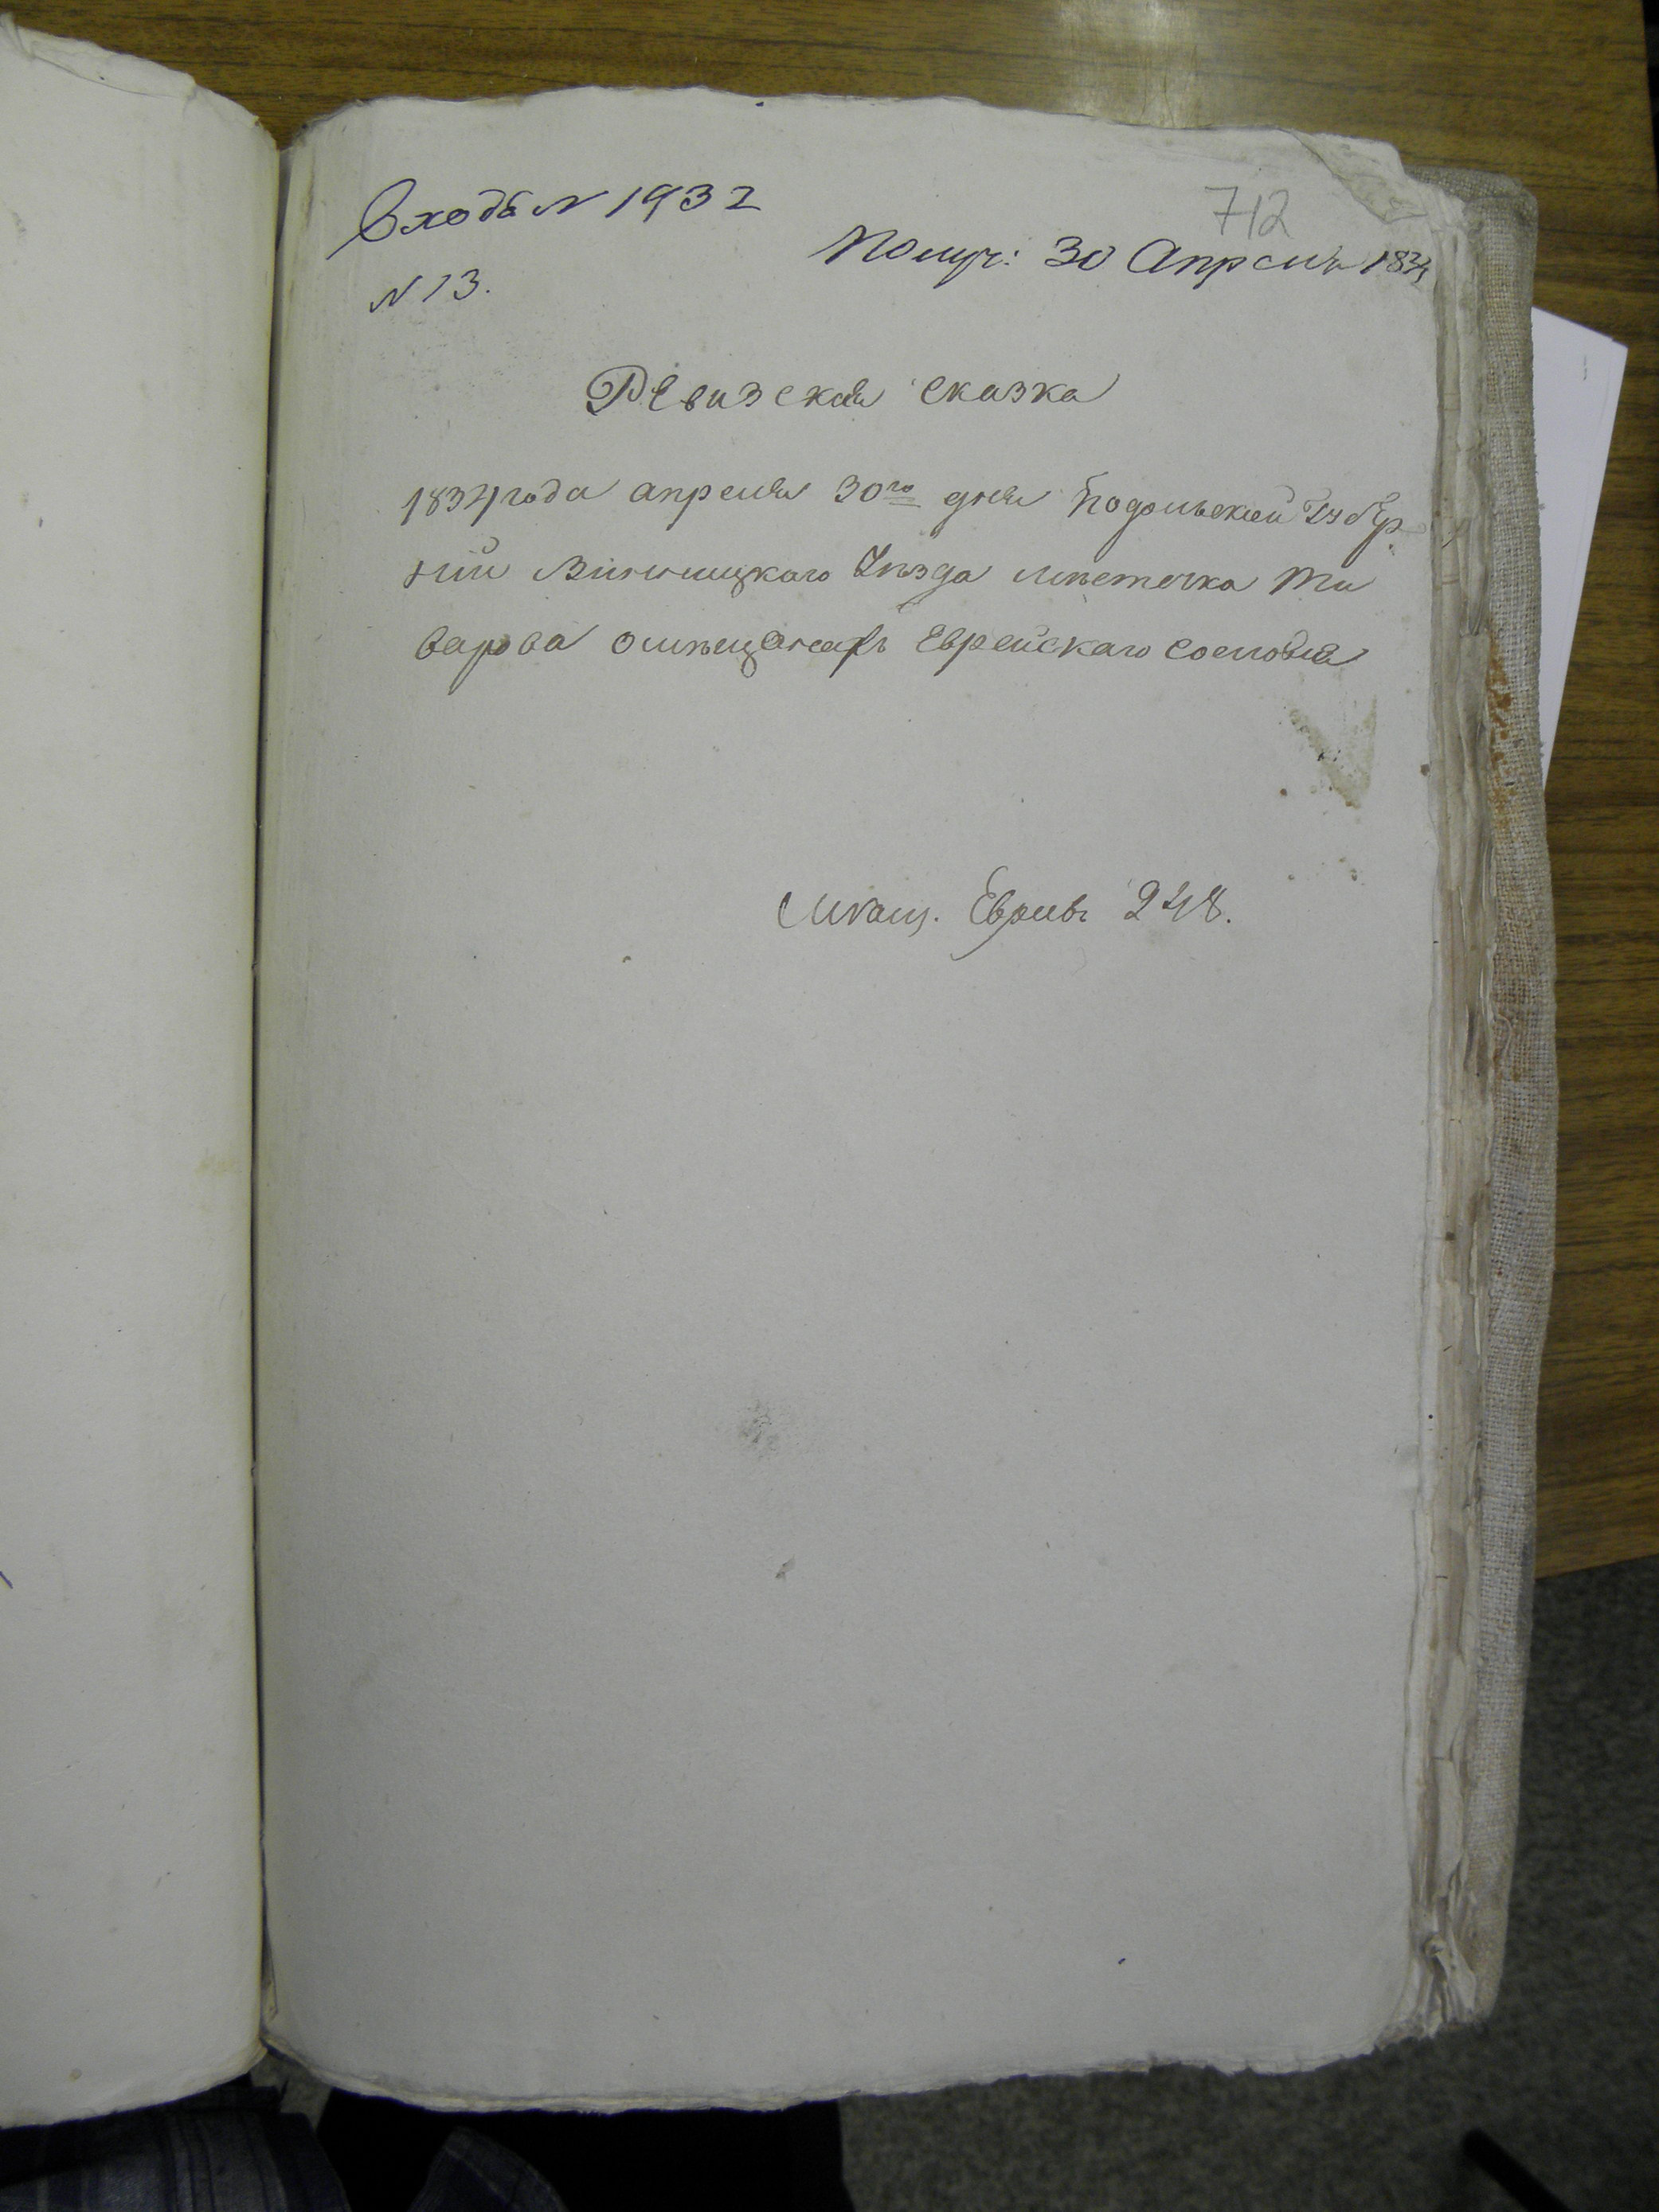 Входа N 1932
712
Получ: 30 Апреля 1834
N 13.
Ревизская сказка
1834 года апреля 30го дня Подольской Губер
ний Винницкаго Уезда местечка Ти
варова омещанахъ Еврейскаго сословия
Мещ. Евреевъ 248.